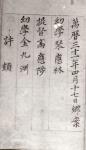 萬曆三十二年四月十七日鄉案
幼學蔡應麟
提督高應陟
幼學金九淵
許穎